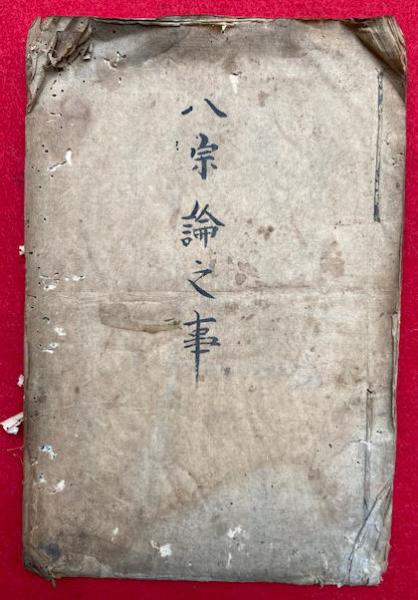 八宗論之事